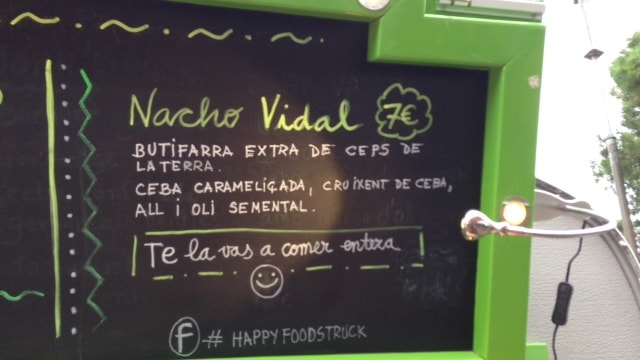 Nacho Vidal 7€
BUTIFARRA EXTRA DE CEPS DE
LA TERRA.
CEBA CARAMELIGADA, CRUIXENT DE CEBA,
ALL i OLI SEMENTAL.
Te la vas a comer entera
f # HAPPYFOODSTRUCK